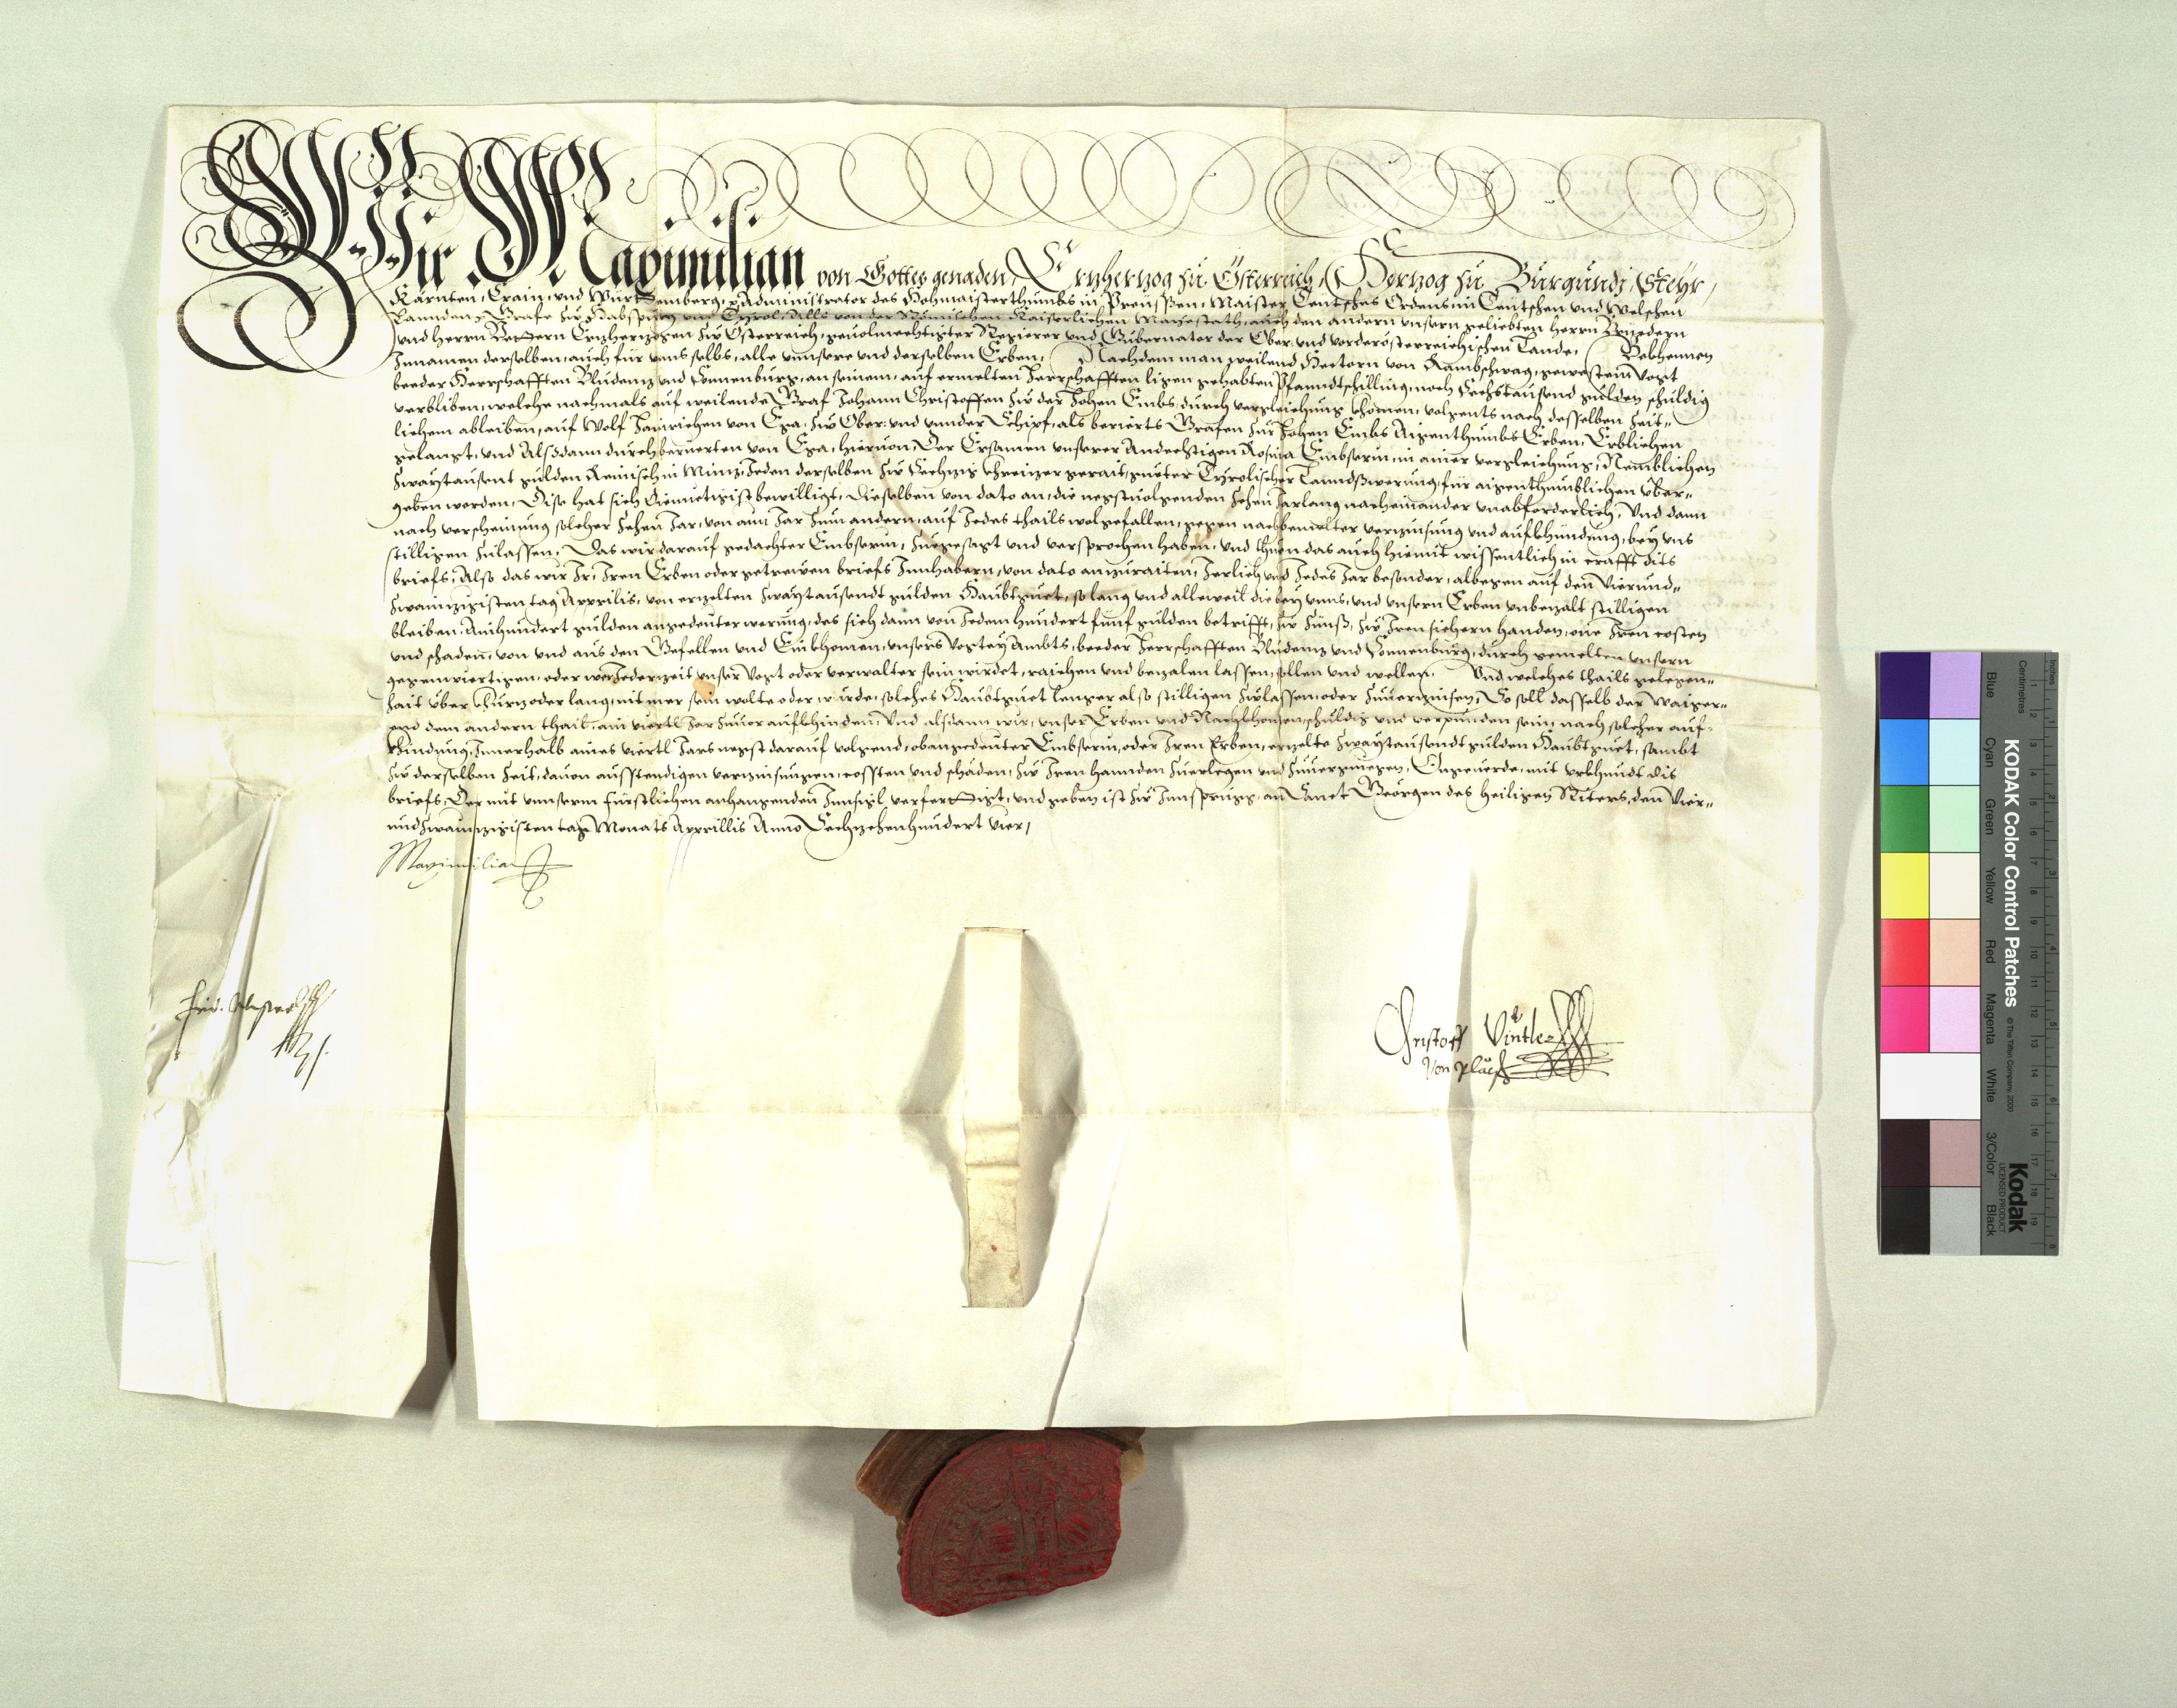 Wir Maximilian von Gottes genaden, Ertzherzog zu Österreich, Hertzog zu Burgundj, Steyr,
Kärnten, Crain, und Würtemberg, Administrator des Hohmaisterthumbs in Preüssen, Maister Teütsches Ordens in Teütschen und Welschen
Lannden, Grafe zu Habspurg und Tyrol, Alls von der Römischen Kaiserlichen Mayestath, auch den andern unsern geliebten Herrn Brüedern
und Herrn Vettern Ertzhertzogen zu Österreich, gevolmechtigter Regierer und Gubernator der Ober und vorderösterreichischen Lande, Bekhennen
Innamen derselben, auch für unns selbs, alle unnsere und derselben Erben, Nachdem man weilend Hectorn von Rambschwag, gewesten Vogt
beeder Herrschafften Bludentz und Sonnenburg, an seinem, auf ermelten Herrschafften ligen gehabten Pfanndtschilling, noch Sechstausend gulden schuldig
verbliben, welche nachmals auf weilende Graf Johann Christoffen zu der Hohen Embs, durch vergleichung khomen, volgents nach desselben Zeit-
lichem ableiben, auf Wolf Hainrichen von Ega, zu Ober und unnder Schipf, als berierts Grafen zu Hohen Embs Aigenthumbs Erben, Erblichen
gelangt, und Alsdann durch beruerten von Ega, hievon, Der Ersamen unserer Andechtigen Rosina Embserin, in ainer vergleichung, Nemblichen
Zwaytausent gulden Reinisch in Müntz, Jeden derselben zu Sechtzig khreitzer gerait, gueter Tyrolischer Lanndßwerung, für aigenthumblichen über-
geben worden, Dise hat sich Diemüetigist bewilligt, Dieselben von dato an, die negstvolgenden Zehen Jar lang nacheinander unabforderlich, Und dann
nach verscheinung solcher Zehen Jar, von aim Jar zum andern, auf Jedes thails wolgefallen, gegen nachbemelter verzinsung und aufkhündung, bey uns
stilligen zulassen, Das wir darauf gedachter Embserin, zuegesagt und versprochen haben, und thuen das auch hiemit wissentlich in crafft dits
briefs, Also das wir Ir, Iren Erben oder getrewen briefs Innhabern, von dato anzuraiten, Jerlich und Jedes Jar besonder, albegen auf den Vierund-
zwaintzigisten tag Apprilis, von ertzelten Zwaytausendt gulden Haubtguet, so lang und alleweil die bey unns, und unsern Erben unbezalt stilligen
bleiben, Ainhundert gulden angedeuter werung, des sich dann von Jedem hundert fünf gulden betrifft, zu Zinß, zu Iren sichern handen, one Iren costen
und schaden, von und aus den Gefellen und Einkhomen, unsers Vogtey Ambts, beeder Herrschafften Bludentz und Sonnenburg, durch gemelten unsern
gegenwiertigen, oder wer Jederzeit unser Vogt oder verwalter sein wirdet, raichen und bezalen lassen, sollen und wellen, Und welches thails gelegen-
hait über khurtz oder lang, nit mer sein wolte oder wurde, solches Haubtguet lenger also stilligen zulassen, oder zuverzinsen, So soll dasselb der Waiger-
end dem andern thail, ain viertl Jar zuvor aufkhinden, Und alsdann wir, unser Erben und Nachkhomen, schuldig und verpunden sein, nach solcher auf-
khindung, Innerhalb aines viertl Jars negst darauf volgend, obangedeuter Embserin, oder Iren Erben, ertzelte Zwaytausendt gulden Haubtguet, sambt
zu derselben Zeit, davon ausstendigen verzinsungen, cossten und schäden, zu Iren hannden zuerlegen und zuvergnüegen, Ongeverde, mit urkhundt dis
briefs, Der mit unnserm Fürstlichen anhangenden Innsigl verfertigt, und geben ist zu Innsprugg, an Sanct Georgen des Heiligen Riters, den Vier-
undzwaintzigisten tag Monats Apprillis Anno Sechzehenhundert vier,
Maximilian
Christoff Vintler
von Pläts
Inches
Centimetres
KODAK Color Control Patches
© The Tiffen Company, 2000
Kodak
LICENSED PRODUCT
Blue
Cyan
Green
Yellow
Red
Magenta
White
3/Color
Black